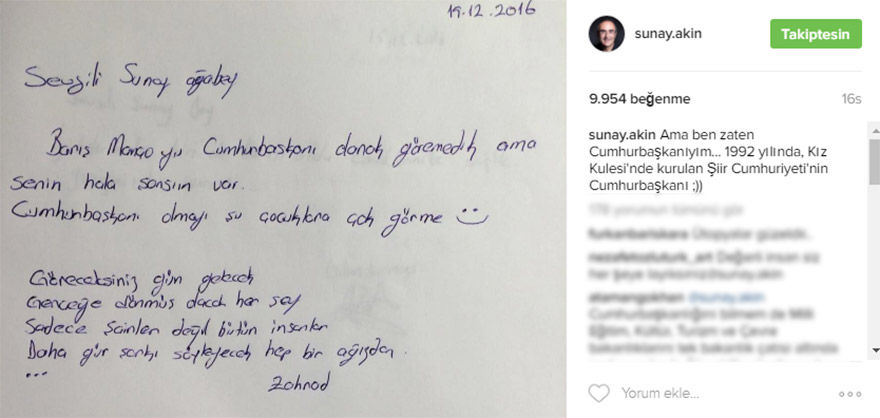 19.12.2016
Sevgili Sunay ağabey
Barış Manço yu Cumhurbaşkanı olarak göremedik ama
senin hala şansın var.
Cumhurbaşkanı olmayı şu çocuklara çok görme
Göreceksiniz gün gelecek
Gerçeğe dönmüş olacak her şey
Sadece şairler değil bütün insanlar
Daha gür şarkı söyleyecek hep bir ağızdan.
...
sunay.akin
Takiptesin
9.954 beğenme
16s
sunay.akin Ama ben zaten
Cumhurbaşkanıyım... 1992 yılında, Kız
Kulesi'nde kurulan Şiir Cumhuriyeti'nin
Cumhurbaşkanı ;))
178 yorumun tümünü gör
furkanbariskara Ütopyalar güzeldir..
Değerli insan siz
her şeye layiksiniz@sunay.akin
atamangokhan @sunay.akin
Cumhurbaşkanlığını bilmem de Milli
Eğitim, Kültür, Turizm ve Çevre
bakanlıklarını tek bakanlık çatısı altında
Yorum ekle...